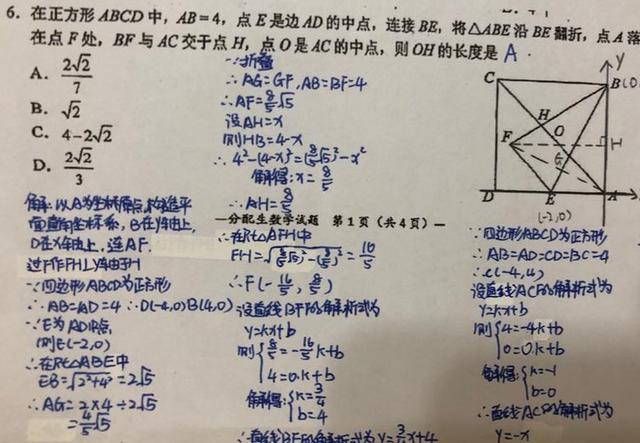 6. 在正方形 ABCD 中，AB=4，点 E 是边 AD 的中点，连接 BE，将△ABE 沿 BE 翻折，点 A 落
在点 F 处，BF 与 AC 交于点 H，点 O 是 AC 的中点，则 OH 的长度是 A .
A. 2√2/7
B. √2
C. 4-2√2
D. 2√2/3
解:以A为坐标原点,构造平
面直角坐标系，B在Y轴上,
D在X轴上,连AF.
过F作FH⊥Y轴于H
∵四边形ABCD为正方形
∴AB=AD=4 ∴D(-4,0)B(4,0)
∵E为AD中点
则E(-2,0)
∴在Rt△ABE中
EB=√(2²+4²)=2√5
∴AG=2×4÷2√5
=4/5√5
∵折叠
∴AG=GF,AB=BF=4
∴AF=8/5√5
设AH=x
则HB=4-x
∴4²-(4-x)²=(8/5√5)²-x²
解得:x=8/5
∴AH=8/5
—分配生数学试题 第1页（共4页）—
∴在Rt△AFH中
FH=√((8/5√5)²-(8/5)²)=16/5
∴F(-16/5, 8/5)
设直线BF的解析式为
y=kx+b
则{8/5=-16/5k+b
4=0.k+b
解得:{k=3/4
b=4
∴直线BF的解析式为y=3/4x+4
Y
C
B(0
H
O
F
G
H
D
E
A
X
(-2,0)
∵四边形ABCD为正方形
∴AB=AD=CD=BC=4
∴C(-4,4)
设直线AC的解析式为
y=kx+b
则{4=-4k+b
0=0.k+b
解得:{k=-1
b=0
∴直线AC的解析式为
y=-x